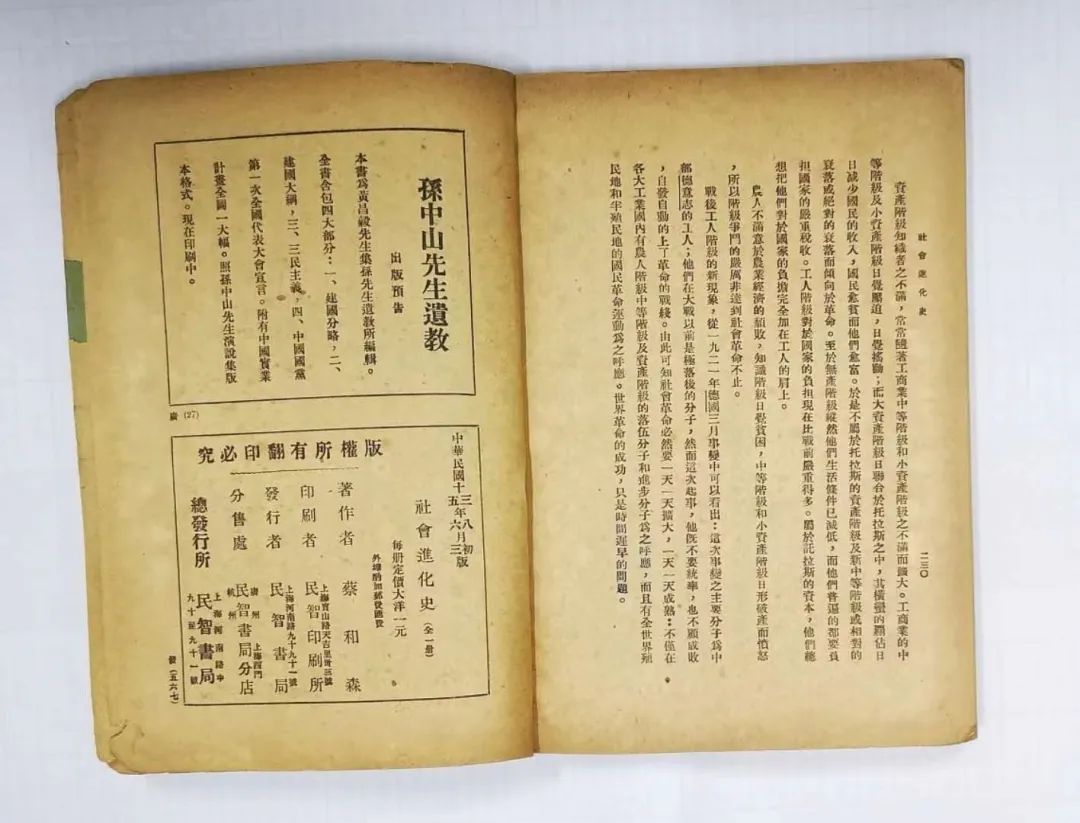 社會進化史
二三〇
資產階級知識者之不滿，常常隨著工商業中等階級和小資產階級之不滿而擴大。工商業的中
等階級及小資產階級日覺壓迫，日覺搖動；而大資產階級日聯合於托拉斯之中，其橫蠻的覇佔日
日減少國民的收入，國民愈貧而他們愈富。於是不屬於托拉斯的資產階級及新中等階級或相對的
衰落或絕對的衰落而傾向於革命。至於無產階級縱然他們生活條件已減低，而他們普遍的都要負
担國家的嚴重稅收。工人階級對於國家的負担現在比戰前嚴重得多。屬於託拉斯的資本，他們總
想把他們對於國家的負擔完全加在工人的肩上。
農人不滿意於農業經濟的頹敗，知識階級日覺貧困，中等階級和小資產階級日形破產而憤怒
，所以階級爭鬥的嚴厲非達到社會革命不止。
戰後工人階級的新現象，從一九二一年德國三月事變中可以看出：這次事變之主要分子為中
部德意志的工人；他們在大戰以前是極落後的分子，然而這次起事，他旣不要統率，也不顧成敗
，自發自動的上了革命的戰綫。由此可知社會革命必然要一天一天擴大，一天一天成熟：不僅在
各大工業國內有農人階級中等階級及資產階級的落伍分子和進步分子為之呼應，而且有全世界殖
民地和半殖民地的國民革命運動為之呼應。世界革命的成功，只是時間遲早的問題。
孫中山先生遺教
出版預告
本書為黃昌穀先生集孫先生遺教所編輯。
全書含包四大部分：一、建國方略，二、
建國大綱，三、三民主義，四、中國國黨
第一次全國代表大會宣言。附有中國實業
計畫全圖一大幅。照孫中山先生演說集版
本格式。現在印刷中。
廣 (27)
版權所有翻印必究
中華民國十三年八月初版
十五年六月三版
社會進化史（全一册）
每册定價大洋一元
外埠酌加郵費匯費
著作者 蔡和森
印刷者 上海寶山路天吉里卅三號 民智印刷所
發行者 上海河南路九十九十一號 民智書局
分售處 廣州 杭州 上海西門 民智書局分店
總發行所 上海河南路中九十至九十一號 民智書局
號（五六七）